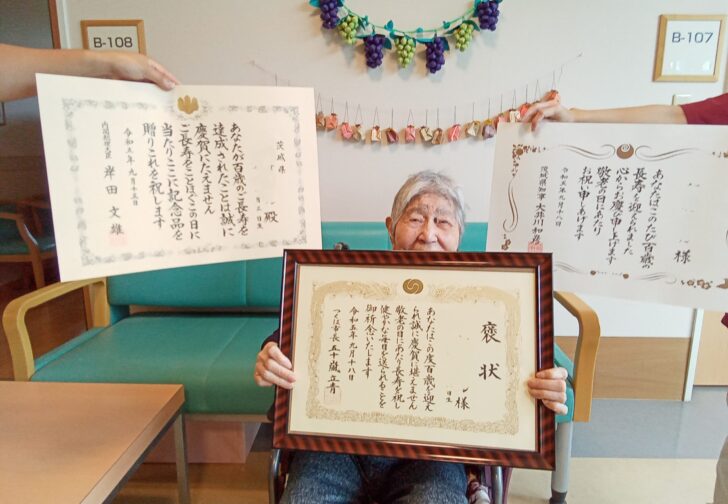 B-108
B-107
茨城県
殿
月 日生
あなたが百歳のご長寿を
達成されたことは誠に
慶賀にたえません
ご長寿をことほぐこの日に
当たりここに記念品を
贈りこれを祝します
令和五年九月十五日
内閣総理大臣 岸田文雄
様
あなたはこのたび百歳の
長寿を迎えられました
心からお慶び申し上げます
敬老の日にあたり
お祝い申しあげます
令和五年九月十八日
茨城県知事 大井川和彦
褒状
様
日生
あなたはこの度百歳を迎え
られ誠に慶賀に堪えません
敬老の日にあたり長寿を祝し
健やかな毎日を送られることを
御祈念いたします
令和五年九月十八日
つくば市長 五十嵐立青